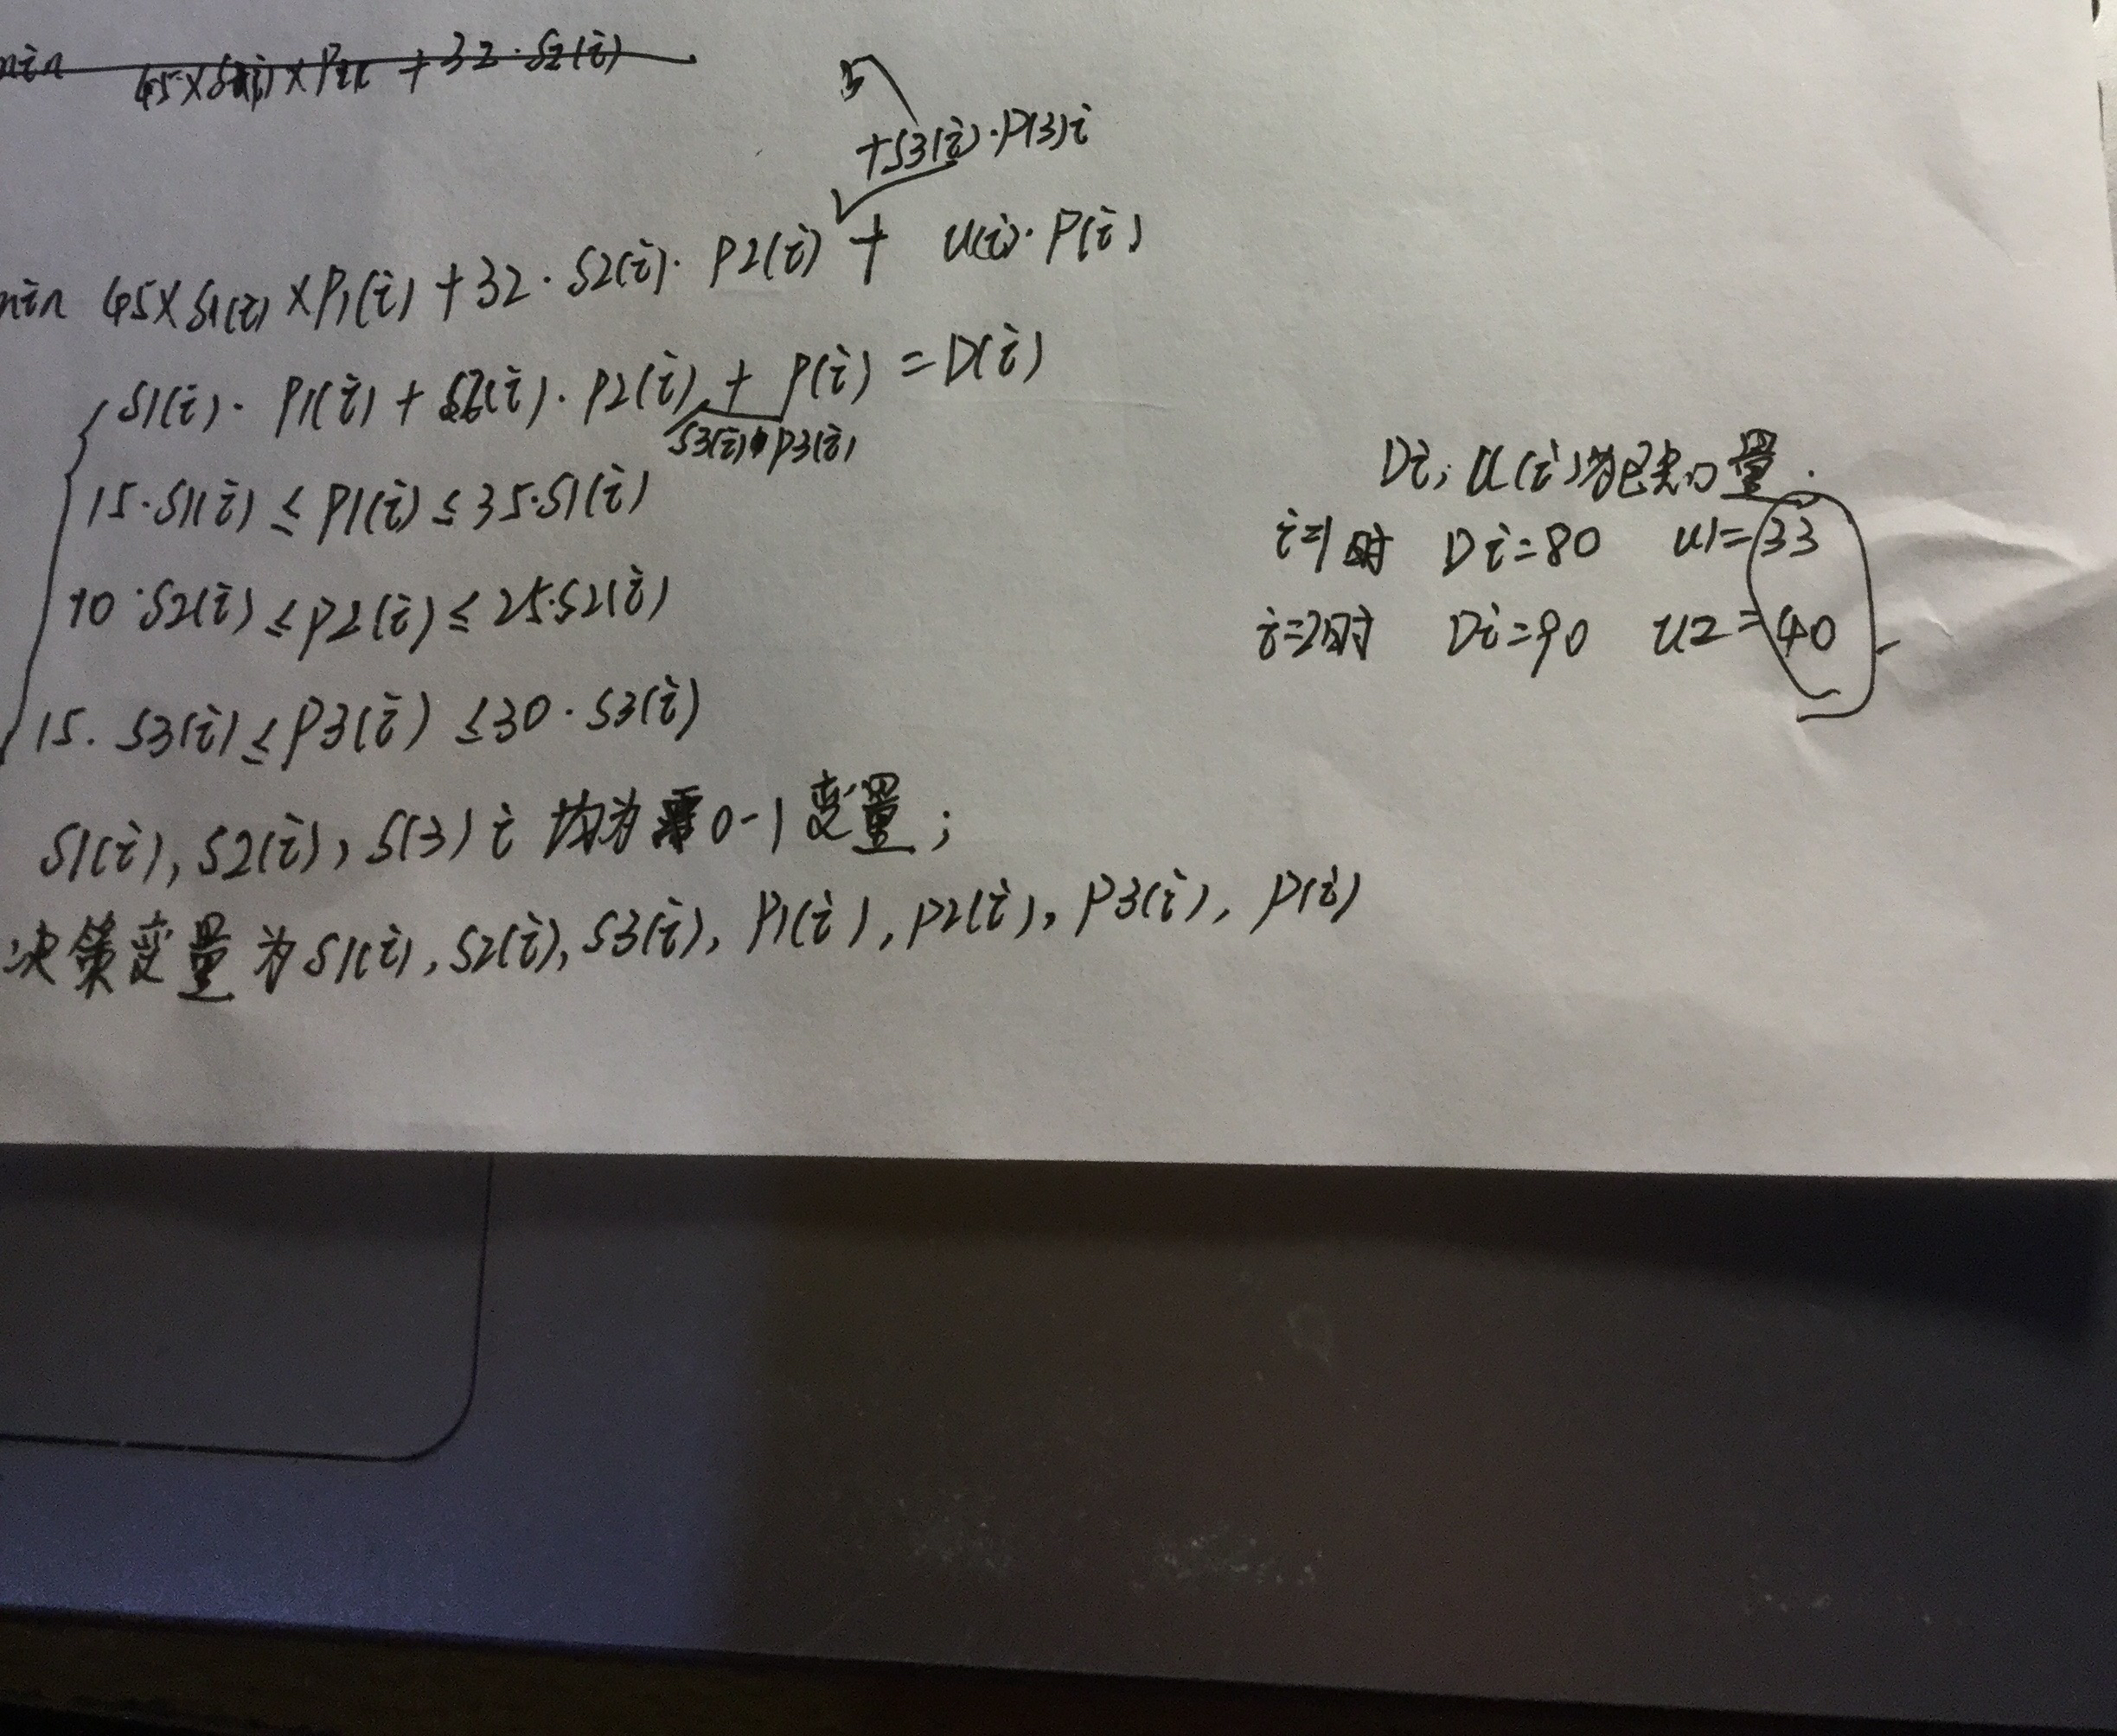 min 45×S1(i)×P1i + 32·S2(i)
5
+S3(i)·P(3)i
min 45×S1(i)×P1(i)+32·S2(i)·P2(i) + u(i)·P(i)
S1(i)·P1(i)+S2(i)·P2(i)+P(i)=D(i)
S3(i)·P3(i)
15·S1(i)≤P1(i)≤35·S1(i)
10·S2(i)≤P2(i)≤25·S2(i)
15·S3(i)≤P3(i)≤30·S3(i)
S1(i),S2(i),S(3)i 均为0-1变量;
决策变量为S1(i),S2(i),S3(i),P1(i),P2(i),P3(i),P(i)
Di,u(i)为已知量.
i=1时 Di=80 u1=33
i=2时 Di=90 u2=40